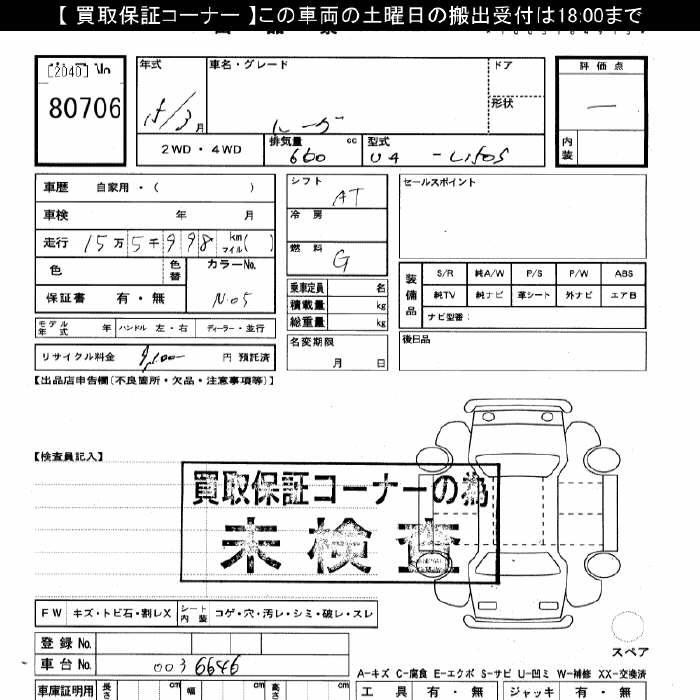 【 買取保証コーナー 】この車両の土曜日の搬出受付は18:00まで
[2040] No
80706
年式
車名・グレード
ドア
形状
評価点
15/3月
ルーグ
2WD・4WD
排気量 660 cc
型式
内装
車歴 自家用・( )
車検 年 月
走行 15万5千998 km マイル( )
色
色替
カラーNo.
N-05
保証書 有・無
シフト AT
冷房
燃料 G
乗車定員 名
積載量 kg
総重量 kg
セールスポイント
装備品
S/R 純A/W P/S P/W ABS
純TV 純ナビ 革シート 外ナビ エアB
ナビ型番:
モデル年式 年 ハンドル 左・右 ディーラー・並行
リサイクル料金 円 預託済
名変期限
月 日
後日品
【出品店申告欄(不良箇所・欠品・注意事項等)】
【検査員記入】
買取保証コーナーの為
未検査
FW キズ・トビ石・割レX シート内装 コゲ・穴・汚レ・シミ・破レ・スレ
登録 No.
車台 No. 0036646
スペア
A-キズ C-腐食 E-エクボ S-サビ U-凹ミ W-補修 XX-交換済
車庫証明用 長さ cm 幅 cm 高さ cm
工具 有・無 ジャッキ 有・無